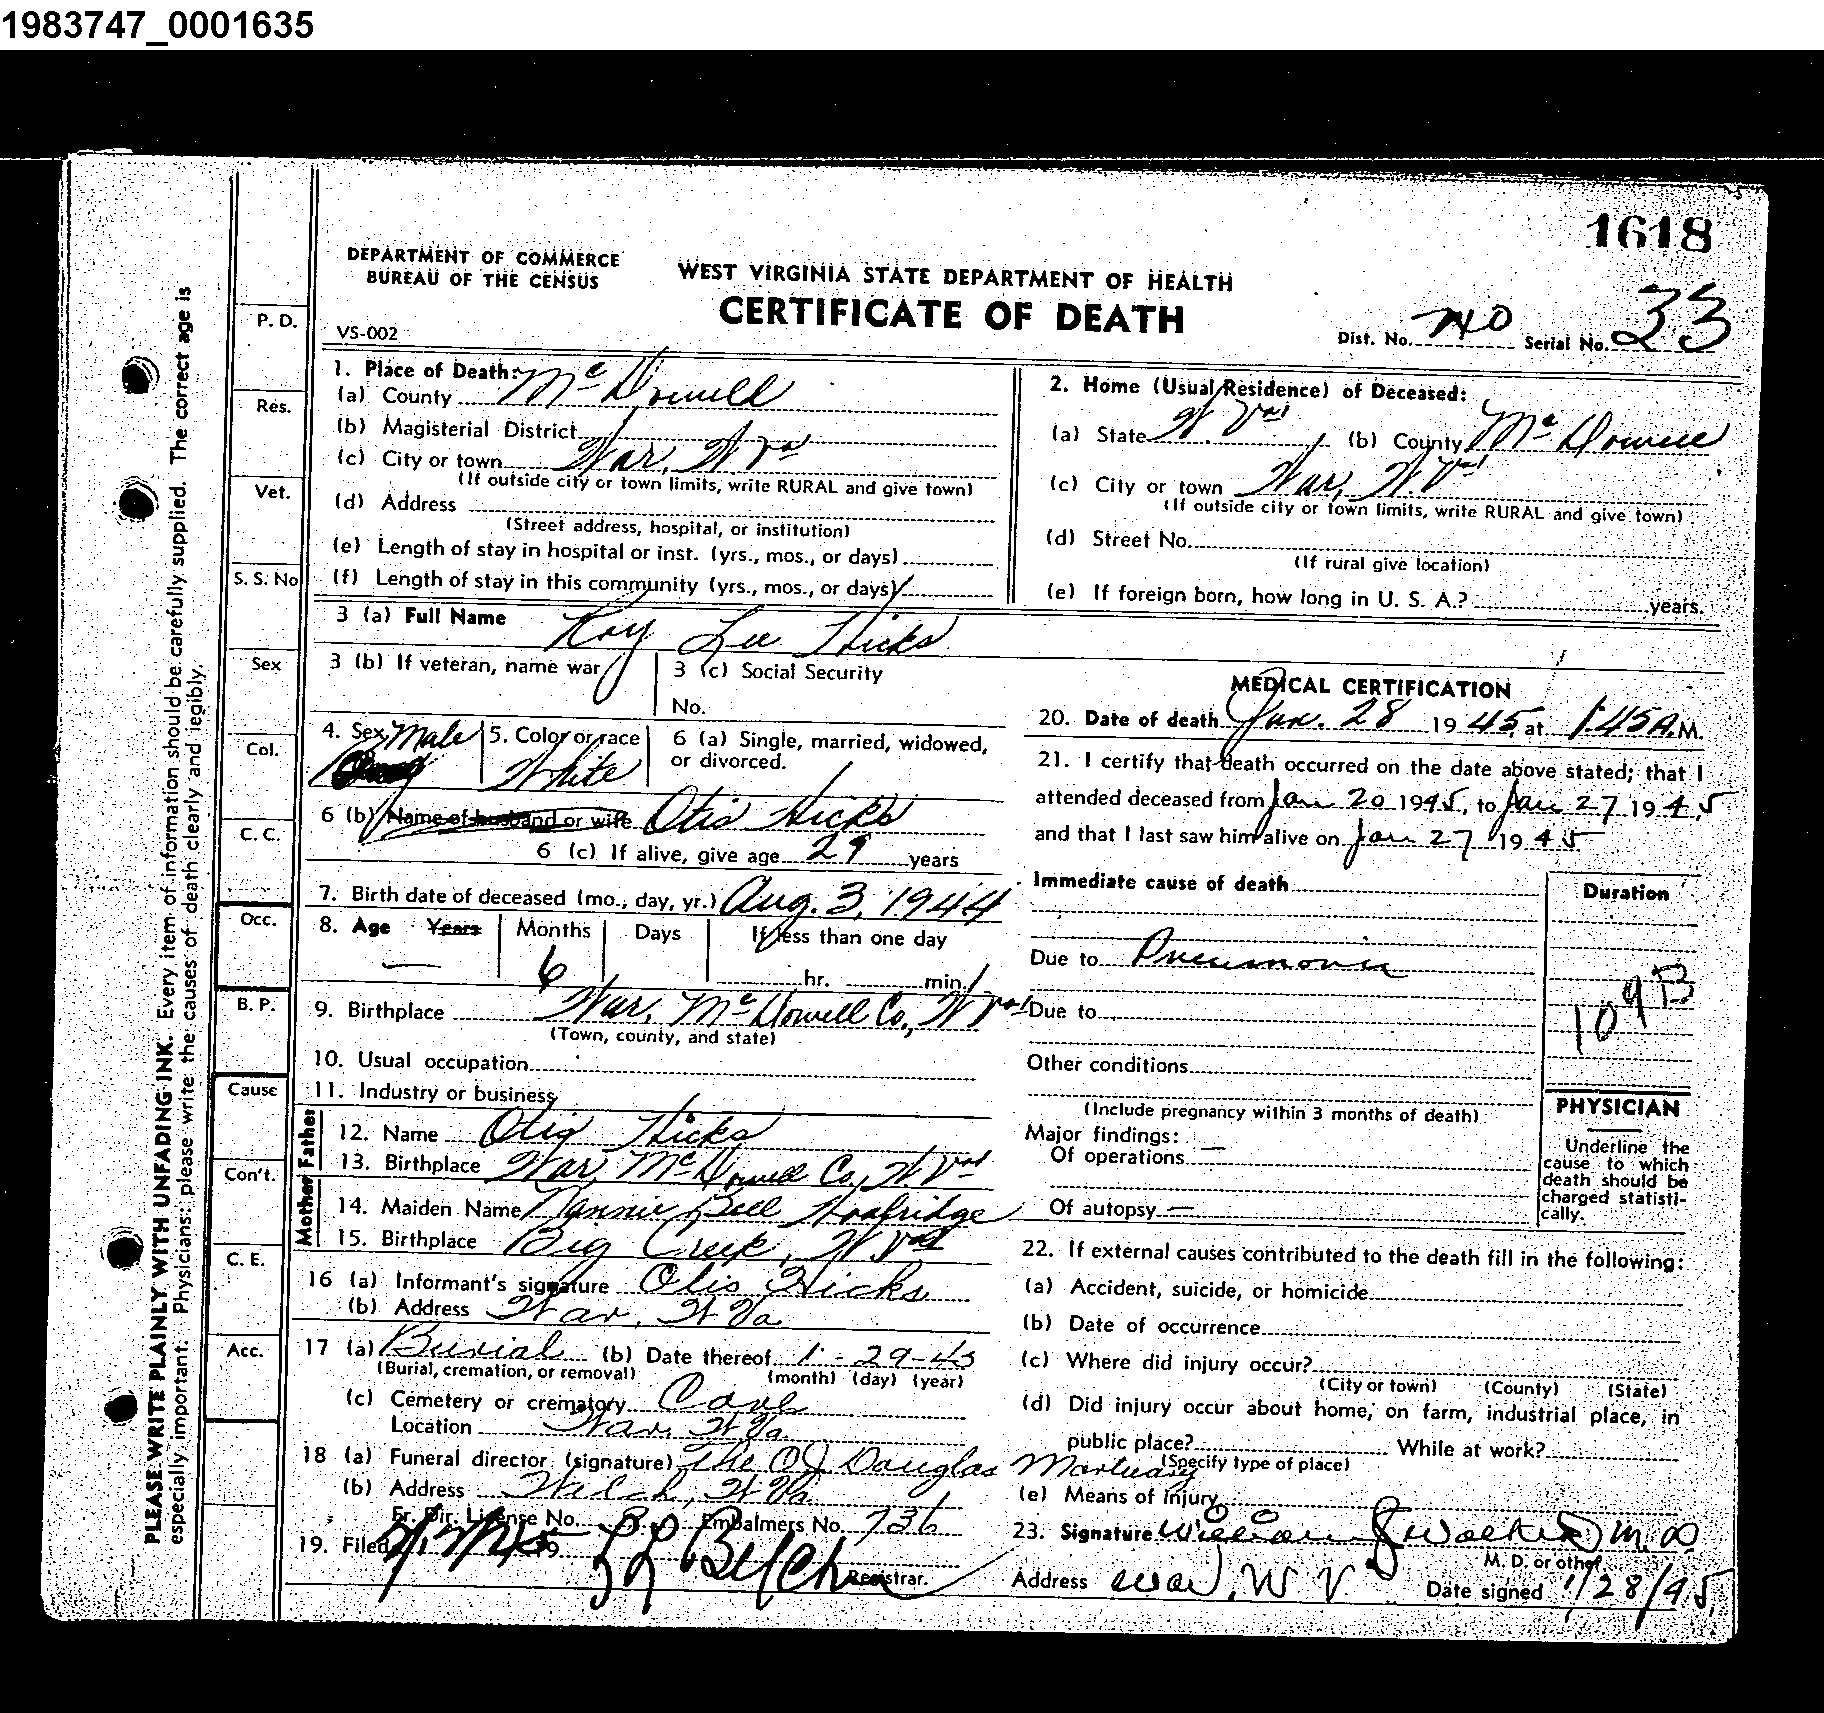 1983747_0001635
1618
DEPARTMENT OF COMMERCE
BUREAU OF THE CENSUS
WEST VIRGINIA STATE DEPARTMENT OF HEALTH
CERTIFICATE OF DEATH
VS-002
Dist. No. 740 Serial No. 33
PLEASE WRITE PLAINLY WITH UNFADING INK. Every item of information should be carefully supplied. The correct age is
especially important. Physicians: please write the causes of death clearly and legibly.
P. D.
Res.
Vet.
S. S. No
Sex
Col.
C. C.
Occ.
B. P.
Cause
Con't.
C. E.
Acc.
1. Place of Death:
(a) County McDowell
(b) Magisterial District
(c) City or town War, W Va
(If outside city or town limits, write RURAL and give town)
(d) Address
(Street address, hospital, or institution)
(e) Length of stay in hospital or inst. (yrs., mos., or days)
(f) Length of stay in this community (yrs., mos., or days)
2. Home (Usual Residence) of Deceased:
(a) State W. Va (b) County McDowell
(c) City or town War, W. Va
(If outside city or town limits, write RURAL and give town)
(d) Street No.
(If rural give location)
(e) If foreign born, how long in U. S. A.? years.
3 (a) Full Name Roy Lee Hicks
3 (b) If veteran, name war
3 (c) Social Security
No.
4. Sex Male
5. Color or race
White
6 (a) Single, married, widowed,
or divorced.
6 (b) Name of husband or wife Otis Hicks
6 (c) If alive, give age 29 years
7. Birth date of deceased (mo., day, yr.) Aug. 3, 1944
8. Age Years Months Days If less than one day
— 6 hr. min.
9. Birthplace War, McDowell Co., W Va
(Town, county, and state)
10. Usual occupation
11. Industry or business
Father
12. Name Otis Hicks
13. Birthplace War, McDowell Co., W Va
Mother
14. Maiden Name Nannie Bell
15. Birthplace Big Creek, W Va
16 (a) Informant's signature Otis Hicks
(b) Address War, W Va
17 (a) Burial (b) Date thereof 1-29-45
(Burial, cremation, or removal) (month) (day) (year)
(c) Cemetery or crematory
Location War, W Va
18 (a) Funeral director (signature) The O J Douglas Mortuary
(b) Address Welch, W Va
Fr. Dir. License No. Embalmers No. 736
19. Filed 19 Belcher
Registrar.
MEDICAL CERTIFICATION
20. Date of death Jan. 28 1945 at 1:45 A.M.
21. I certify that death occurred on the date above stated; that I
attended deceased from Jan 20 1945, to Jan 27 1945
and that I last saw him alive on Jan 27 1945
Immediate cause of death
Duration
Due to Pneumonia
109B
Due to
Other conditions
(Include pregnancy within 3 months of death)
Major findings:
Of operations —
Of autopsy —
PHYSICIAN
Underline the
cause to which
death should be
charged statisti-
cally.
22. If external causes contributed to the death fill in the following:
(a) Accident, suicide, or homicide
(b) Date of occurrence
(c) Where did injury occur?
(City or town) (County) (State)
(d) Did injury occur about home, on farm, industrial place, in
public place? While at work?
(Specify type of place)
(e) Means of injury
23. Signature William M.D.
M. D. or other
Address War, W V Date signed 1/28/45